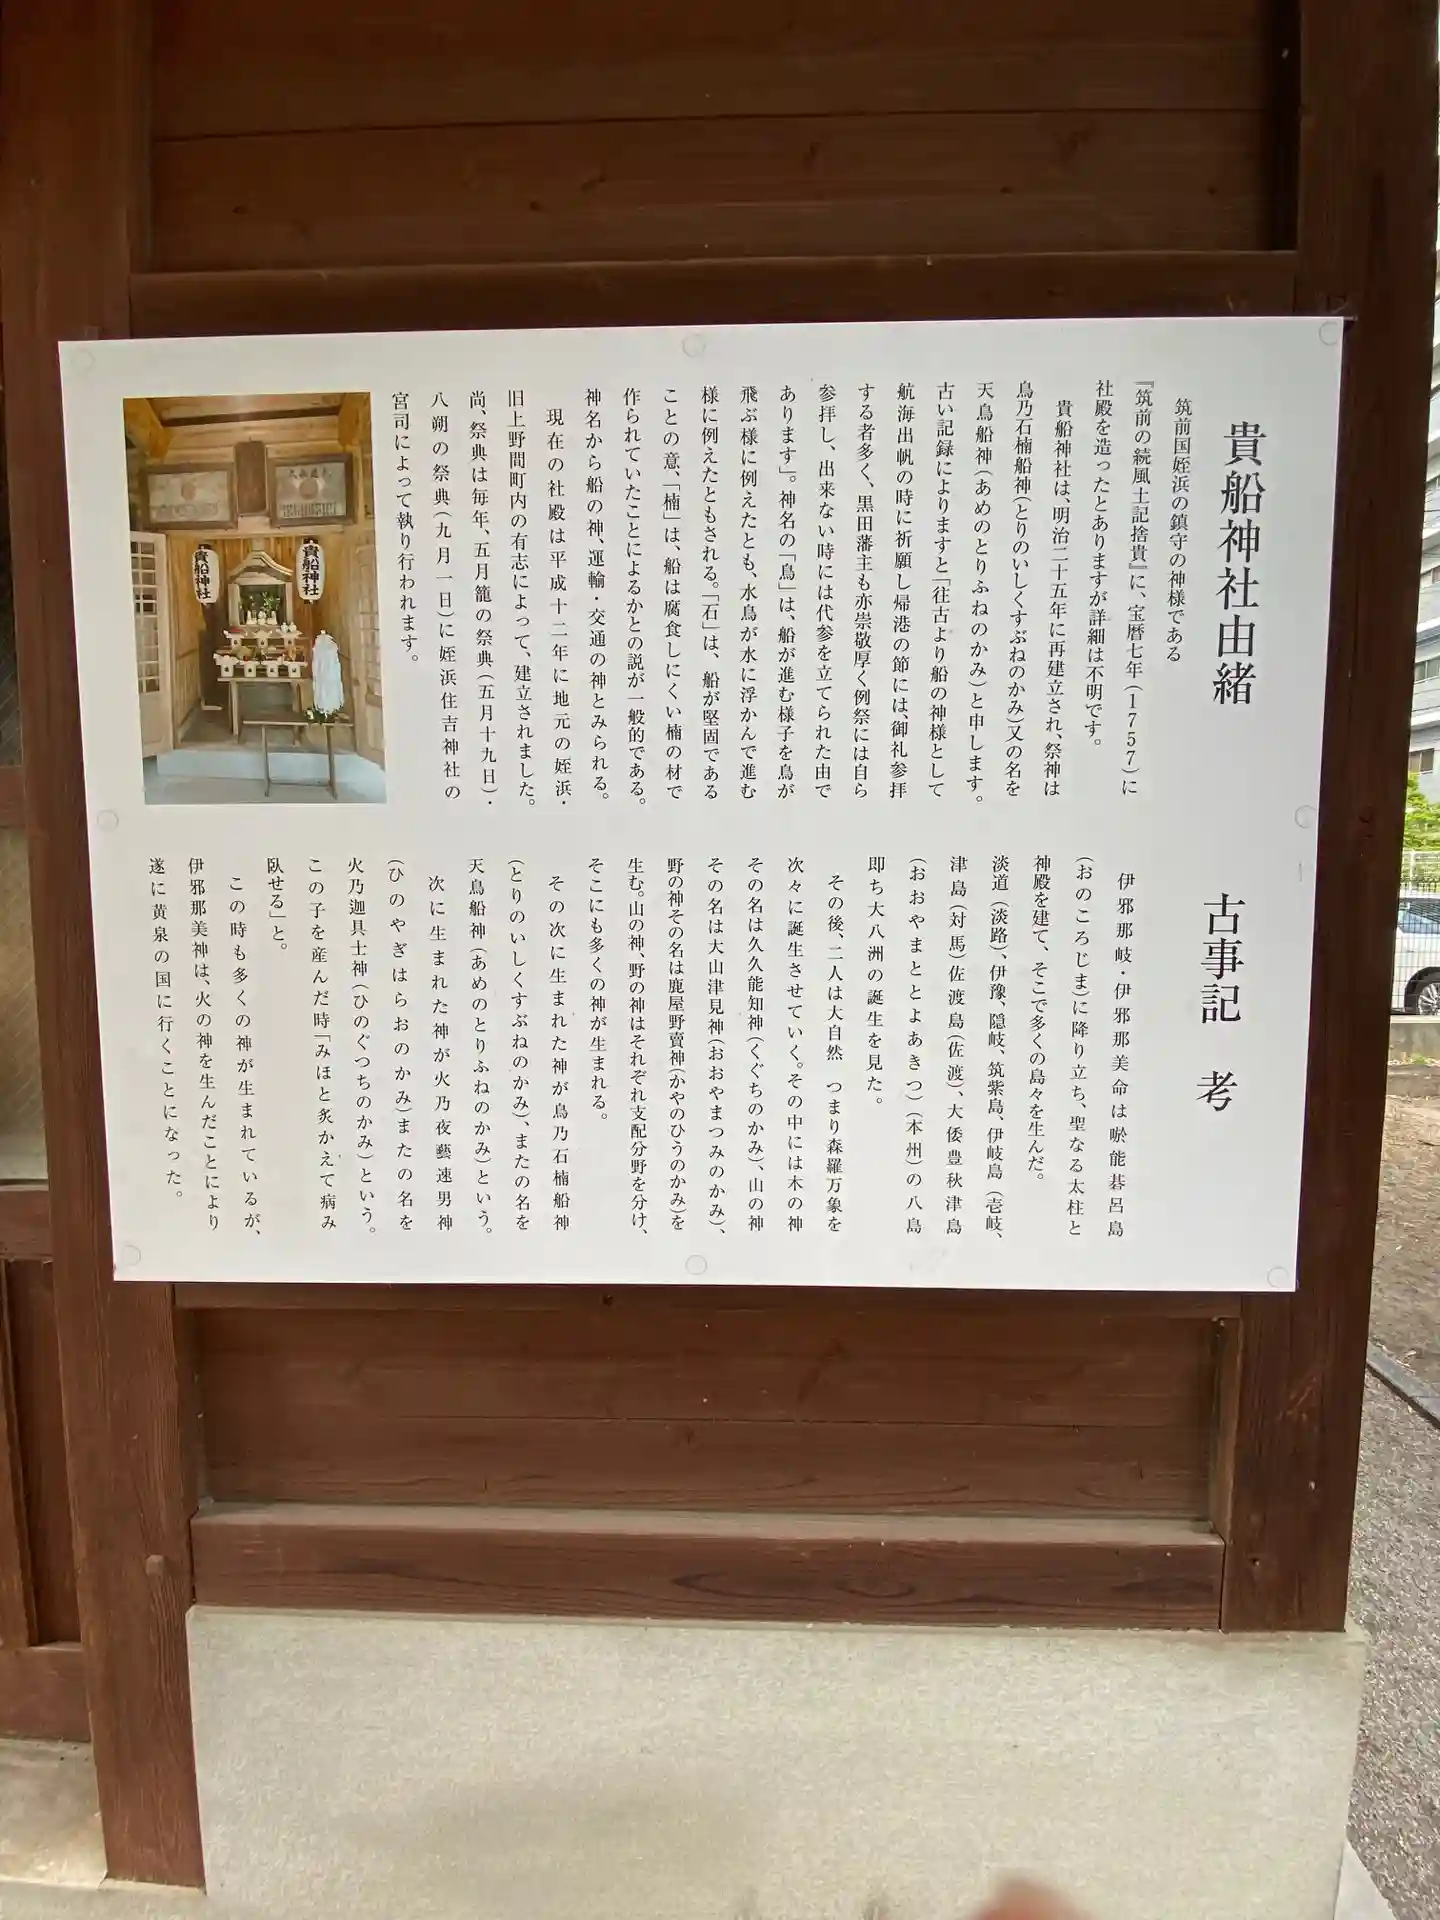 貴船神社由緒
筑前国姪浜の鎮守の神様である
『筑前の続風土記捨貴』に、宝暦七年(1757)に
社殿を造ったとありますが詳細は不明です。
貴船神社は、明治二十五年に再建立され、祭神は
鳥乃石楠船神(とりのいしくすぶねのかみ)又の名を
天鳥船神(あめのとりふねのかみ)と申します。
古い記録によりますと「往古より船の神様として
航海出帆の時に祈願し帰港の節には、御礼参拝
する者多く、黒田藩主も亦崇敬厚く例祭には自ら
参拝し、出来ない時には代参を立てられた由で
あります」。神名の「鳥」は、船が進む様子を鳥が
飛ぶ様に例えたとも、水鳥が水に浮かんで進む
様に例えたともされる。「石」は、船が堅固である
ことの意、「楠」は、船は腐食しにくい楠の材で
作られていたことによるかとの説が一般的である。
神名から船の神、運輸・交通の神とみられる。
現在の社殿は平成十二年に地元の姪浜・
旧上野間町内の有志によって、建立されました。
尚、祭典は毎年、五月籠の祭典(五月十九日)・
八朔の祭典(九月一日)に姪浜住吉神社の
宮司によって執り行われます。
貴船神社
貴船神社
古事記 考
伊邪那岐・伊邪那美命は唹能碁呂島
(おのころじま)に降り立ち、聖なる太柱と
神殿を建て、そこで多くの島々を生んだ。
淡道(淡路)、伊豫、隠岐、筑紫島、伊岐島(壱岐、
津島(対馬)佐渡島(佐渡)、大倭豊秋津島
(おおやまととよあきつ)(本州)の八島
即ち大八洲の誕生を見た。
その後、二人は大自然 つまり森羅万象を
次々に誕生させていく。その中には木の神
その名は久久能知神(くぐちのかみ)、山の神
その名は大山津見神(おおやまつみのかみ)、
野の神その名は鹿屋野賣神(かやのひうのかみ)を
生む。山の神、野の神はそれぞれ支配分野を分け、
そこにも多くの神が生まれる。
その次に生まれた神が鳥乃石楠船神
(とりのいしくすぶねのかみ)、またの名を
天鳥船神(あめのとりふねのかみ)という。
次に生まれた神が火乃夜藝速男神
(ひのやぎはらおのかみ)またの名を
火乃迦具士神(ひのぐつちのかみ)という。
この子を産んだ時「みほと炙かえて病み
臥せる」と。
この時も多くの神が生まれているが、
伊邪那美神は、火の神を生んだことにより
遂に黄泉の国に行くことになった。